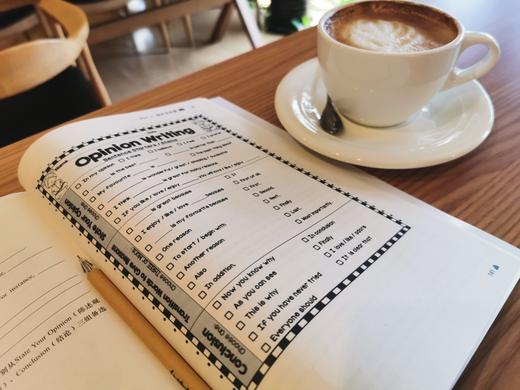 Opinion Writing
Sentence Starters / Stems
In my opinion
I think
I feel
is the best
My favourite
I think
If you like / love / enjoy
is great because
I enjoy / like / love
is my favourite because
State Your Opinion
Choose One:
One reason
To start / begin with
Another reason
Also
In addition,
First,
Next,
Finally
Last
Most importantly,
Transition Words to Give Reasons
Now you know why
As you can see
This is why
If you have never tried
Everyone should
In conclusion
Finally
I love / like / adore
It is clear that
Conclusion
Choose One:
147
your instance,
State Your Opinion (陈述观
- Conclusion (结论) 三组备选